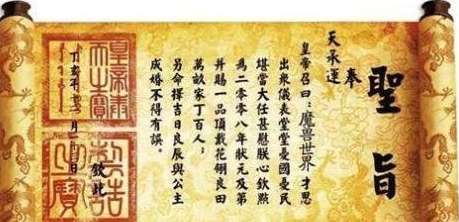 聖旨
奉
天承運
皇帝召曰：魔兽世界才思
出衆儀表堂堂憂國憂民
堪當大任甚慰朕心欽點
為二零零八年狀元及第
并賜一品頂戴花翎良田
萬畝家丁百人；
另命擇吉日良辰與公主
成婚不得有誤。
欽此
皇帝
之寶
之寶